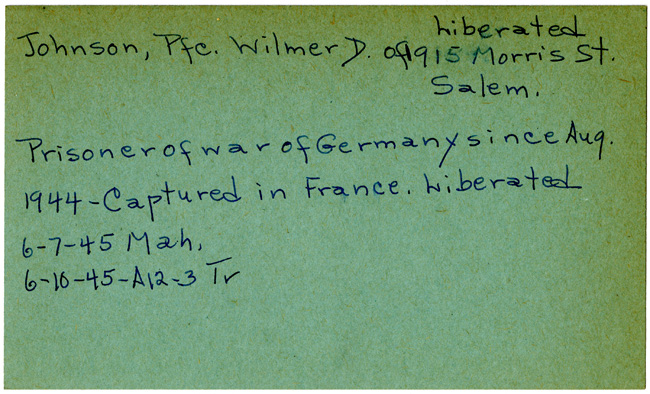 Liberated
Johnson, Pfc. Wilmer D. of 1915 Morris St.
Salem.
Prisoner of war of Germany since Aug.
1944-Captured in France. Liberated
6-7-45 Mah.
6-10-45-A12-3 Tr